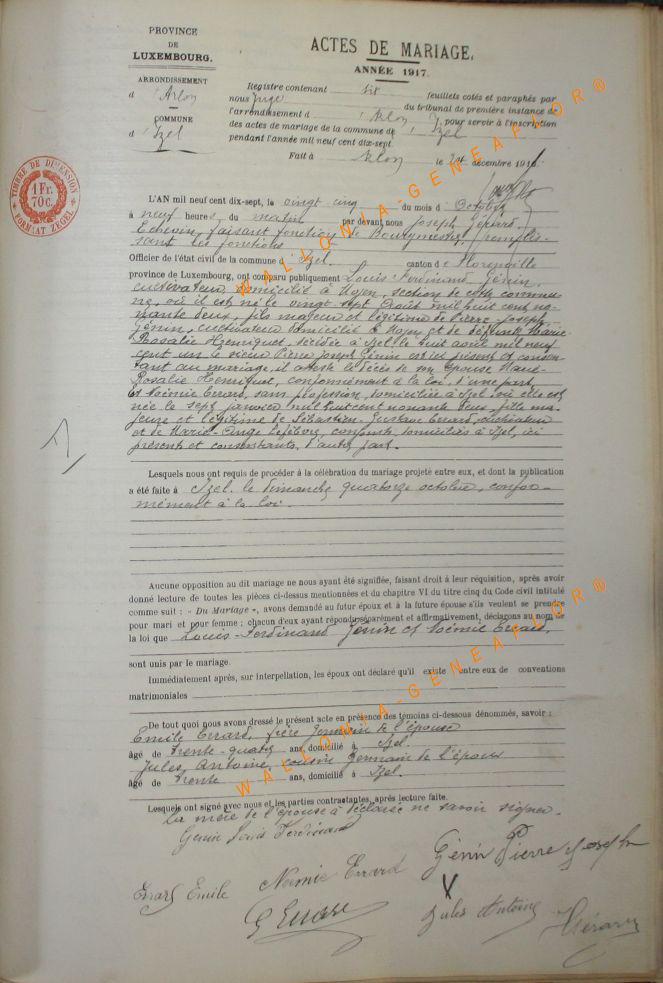 PROVINCE
DE
LUXEMBOURG.
ARRONDISSEMENT
d'Arlon
COMMUNE
d'Izel
ACTES DE MARIAGE.
ANNÉE 1917.
Registre contenant six feuillets cotés et paraphés par
nous Juge du tribunal de première instance de
l'arrondissement d'Arlon, pour servir à l'inscription
des actes de mariage de la commune d'Izel
pendant l'année mil neuf cent dix-sept.
Fait à Arlon le décembre 1916.
TIMBRE DE DIMENSION
1 Fr.
70 C.
FORMAAT ZEGEL
L'AN mil neuf cent dix-sept, le vingt cinq du mois d'Octobre
à neuf heures du matin par devant nous Joseph
Echevin, faisant fonctions de Bourgmestre, remplis-
sant les fonctions
Officier de l'état civil de la commune d'Izel canton de Florenville
province de Luxembourg, ont comparu publiquement Louis-Ferdinand Génin,
cultivateur domicilié à Moyen, section de cette commu-
ne, où il est né le vingt sept Août mil huit cent no-
nante deux, fils majeur et légitime de Pierre-Joseph
Génin, cultivateur domicilié à Moyen et de défunte Marie-
Rosalie Henriquet, décédée à Izel le huit août mil neuf
cent un le sieur Pierre Joseph Génin est ici présent et consen-
tant au mariage, il atteste le décès de son épouse Marie-
Rosalie Henriquet, conformément à la loi, d'une part,
Et Noémie Errard, sans profession, domiciliée à Izel où elle est
née le sept janvier mil huit cent nonante deux, fille ma-
jeure et légitime de Sébastien-Gustave Errard, cultivateur
et de Marie-Ange Lefebvre, conjoints, domiciliés à Izel, ici
présents et consentants, d'autre part.
Lesquels nous ont requis de procéder à la célébration du mariage projeté entre eux, et dont la publication
a été faite à Izel, le dimanche quatorze octobre, confor-
mément à la loi.
Aucune opposition au dit mariage ne nous ayant été signifiée, faisant droit à leur réquisition, après avoir
donné lecture de toutes les pièces ci-dessus mentionnées et du chapitre VI du titre cinq du Code civil intitulé
comme suit : « Du Mariage », avons demandé au futur époux et à la future épouse s'ils veulent se prendre
pour mari et pour femme ; chacun d'eux ayant répondu séparément et affirmativement, déclarons au nom de
la loi que Louis-Ferdinand Génin et Noémie Errard,
sont unis par le mariage.
Immédiatement après, sur interpellation, les époux ont déclaré qu'il existe entre eux de conventions
matrimoniales
De tout quoi nous avons dressé le présent acte en présence des témoins ci-dessous dénommés, savoir :
Emile Errard, frère germain de l'épouse
âgé de trente-quatre ans, domicilié à Izel.
Jules Antoine, cousin germain de l'époux
âgé de trente ans, domicilié à Izel.
Lesquels ont signé avec nous et les parties contractantes, après lecture faite.
La mère de l'épouse a déclaré ne savoir signer.
Genin Louis Ferdinand
Génin Pierre Joseph
Noémie Errard
Errard Emile
G Errard
Jules Antoine
WALLONIA-GENEAFLOR®
WALLONIA-GENEAFLOR®